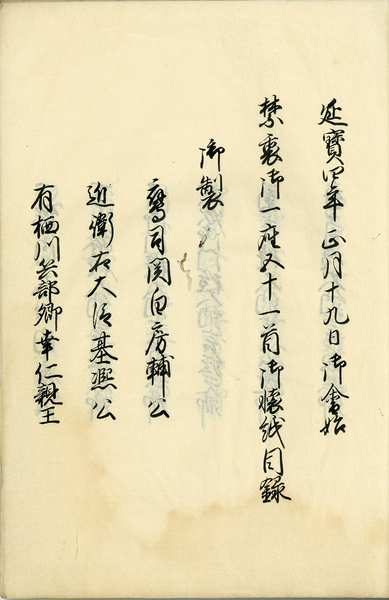 延寶四年正月十九日御會始
禁裏御一座五十一首御懐紙目録
御製
鷹司関白房輔公
近衛右大臣基凞公
有栖川兵部卿幸仁親王